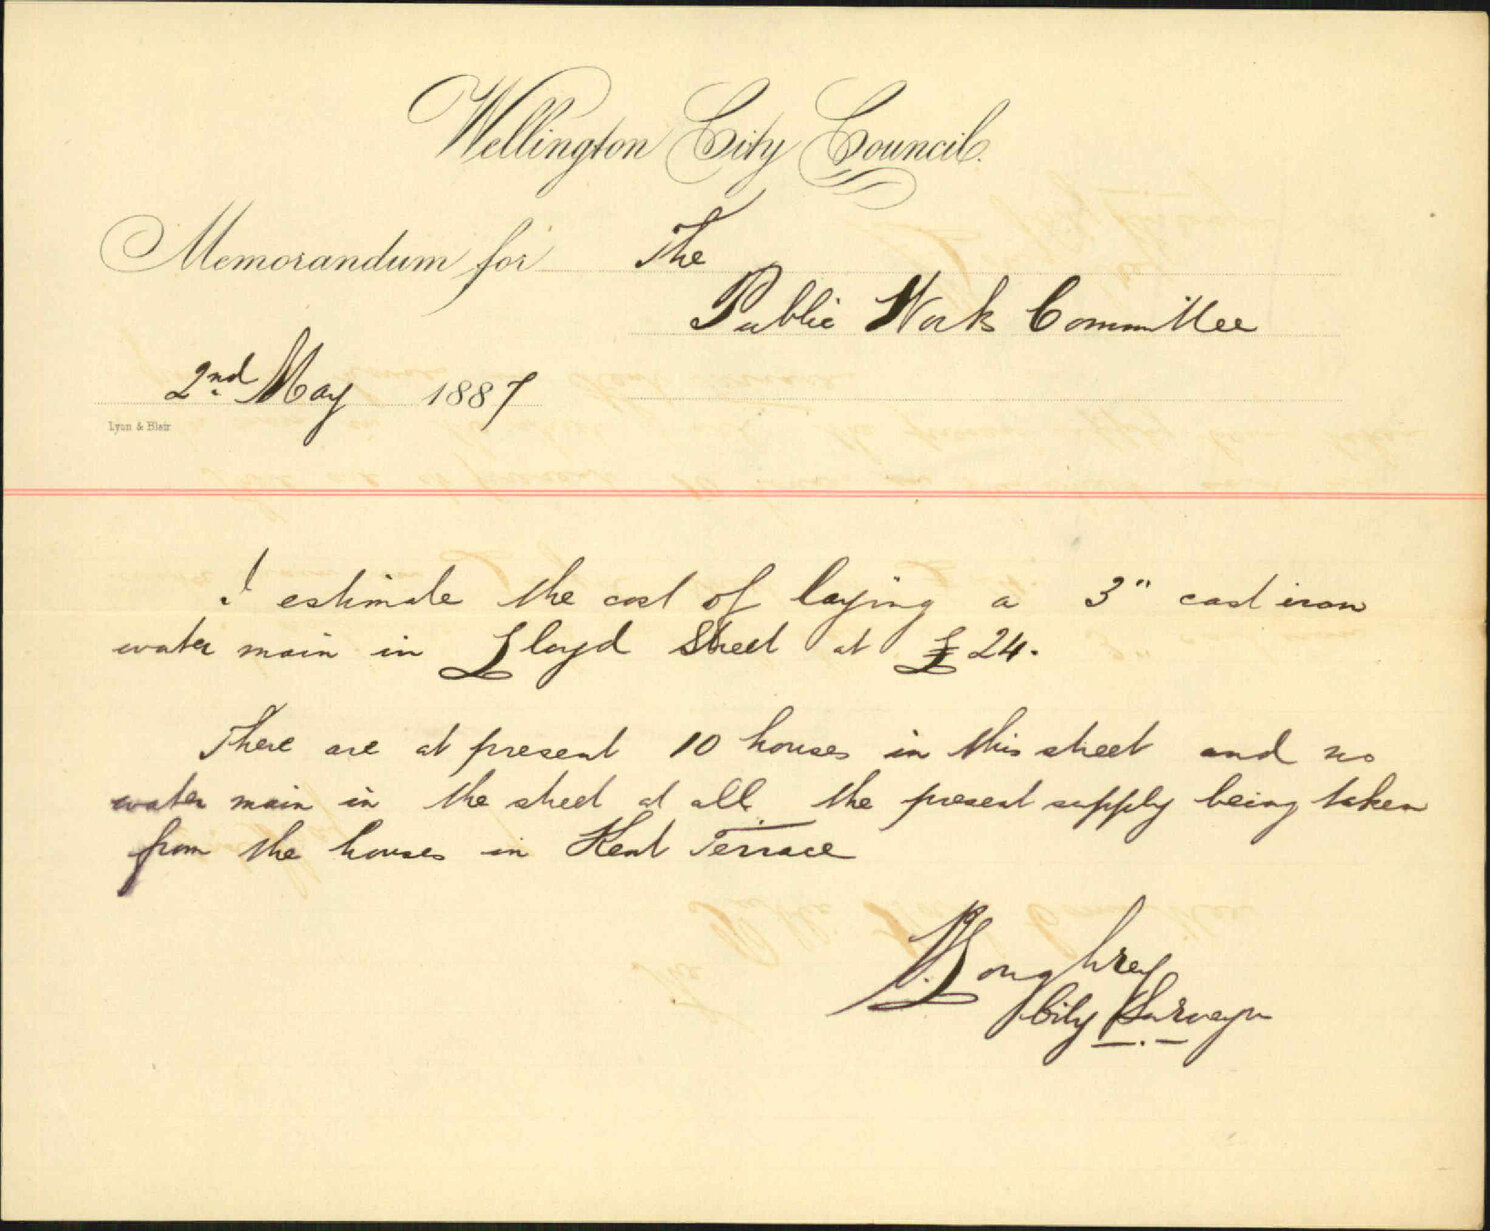 Wellington City Council.
Memorandum for The
Public Work Committee
2nd May 1887
Lyon & Blair
I estimate the cost of laying a 3" cast iron
water main in Lloyd Street at £24.
There are at present 10 houses in this street and no
water main in the street at all the present supply being taken
from the houses in Kent Terrace
Loughrey
City Surveyor